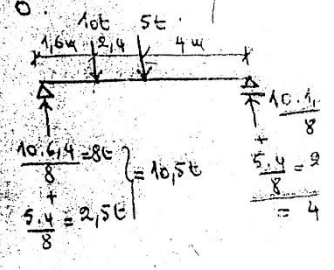 10t 5t
1,6m 2,4 4m
10.6,4/8 = 8t
+
5.4/8 = 2,5t
} = 10,5t
10.1,
8
+
5.4/8 = 2
= 4